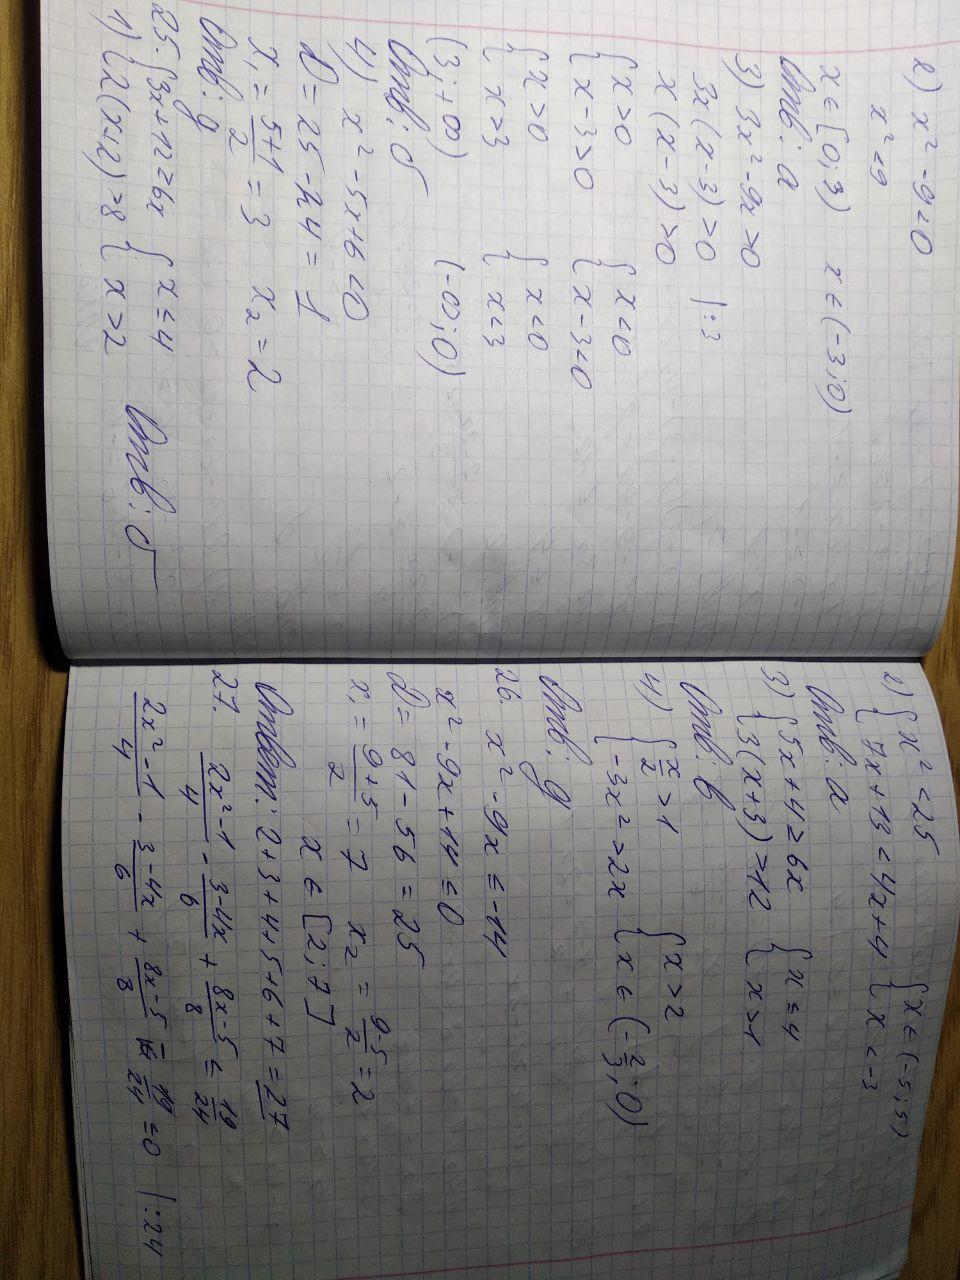 2) x² - 9 < 0
x² < 9
x ∈ [0; 3) x ∈ (-3; 0)
Отв: а
3) 3x² - 9x > 0
3x (x - 3) > 0 | : 3
x (x - 3) > 0
{ x > 0 { x < 0
{ x - 3 > 0 { x - 3 < 0
{ x > 0 { x < 0
{ x > 3 { x < 3
(3; +∞) (-∞; 0)
Отв: б
4) x² - 5x + 6 < 0
D = 25 - 24 = 1
x₁ = (5+1)/2 = 3 x₂ = 2
Отв: д
25. { 3x + 12 ≥ 6x { x ≤ 4
1) { 2(x+2) > 8 { x > 2 Отв: б
2) { x² < 25 { x ∈ (-5; 5)
{ 7x + 13 < 4x + 4 { x < -3
Отв: а
3) { 5x + 4 ≥ 6x { x ≤ 4
{ 3(x + 3) > 12 { x > 1
Отв: в
4) { x/2 > 1 { x > 2
{ -3x² > 2x { x ∈ (-2/3; 0)
Отв: д
26. x² - 9x ≤ -14
x² - 9x + 14 ≤ 0
D = 81 - 56 = 25
x₁ = (9+5)/2 = 7 x₂ = (9-5)/2 = 2
x ∈ [2; 7]
Ответ: 2+3+4+5+6+7 = 27
27. (2x²-1)/4 - (3-4x)/6 + (8x-5)/8 ≤ 19/24
(2x²-1)/4 - (3-4x)/6 + (8x-5)/8 - 19/24 ≤ 0 | : 24